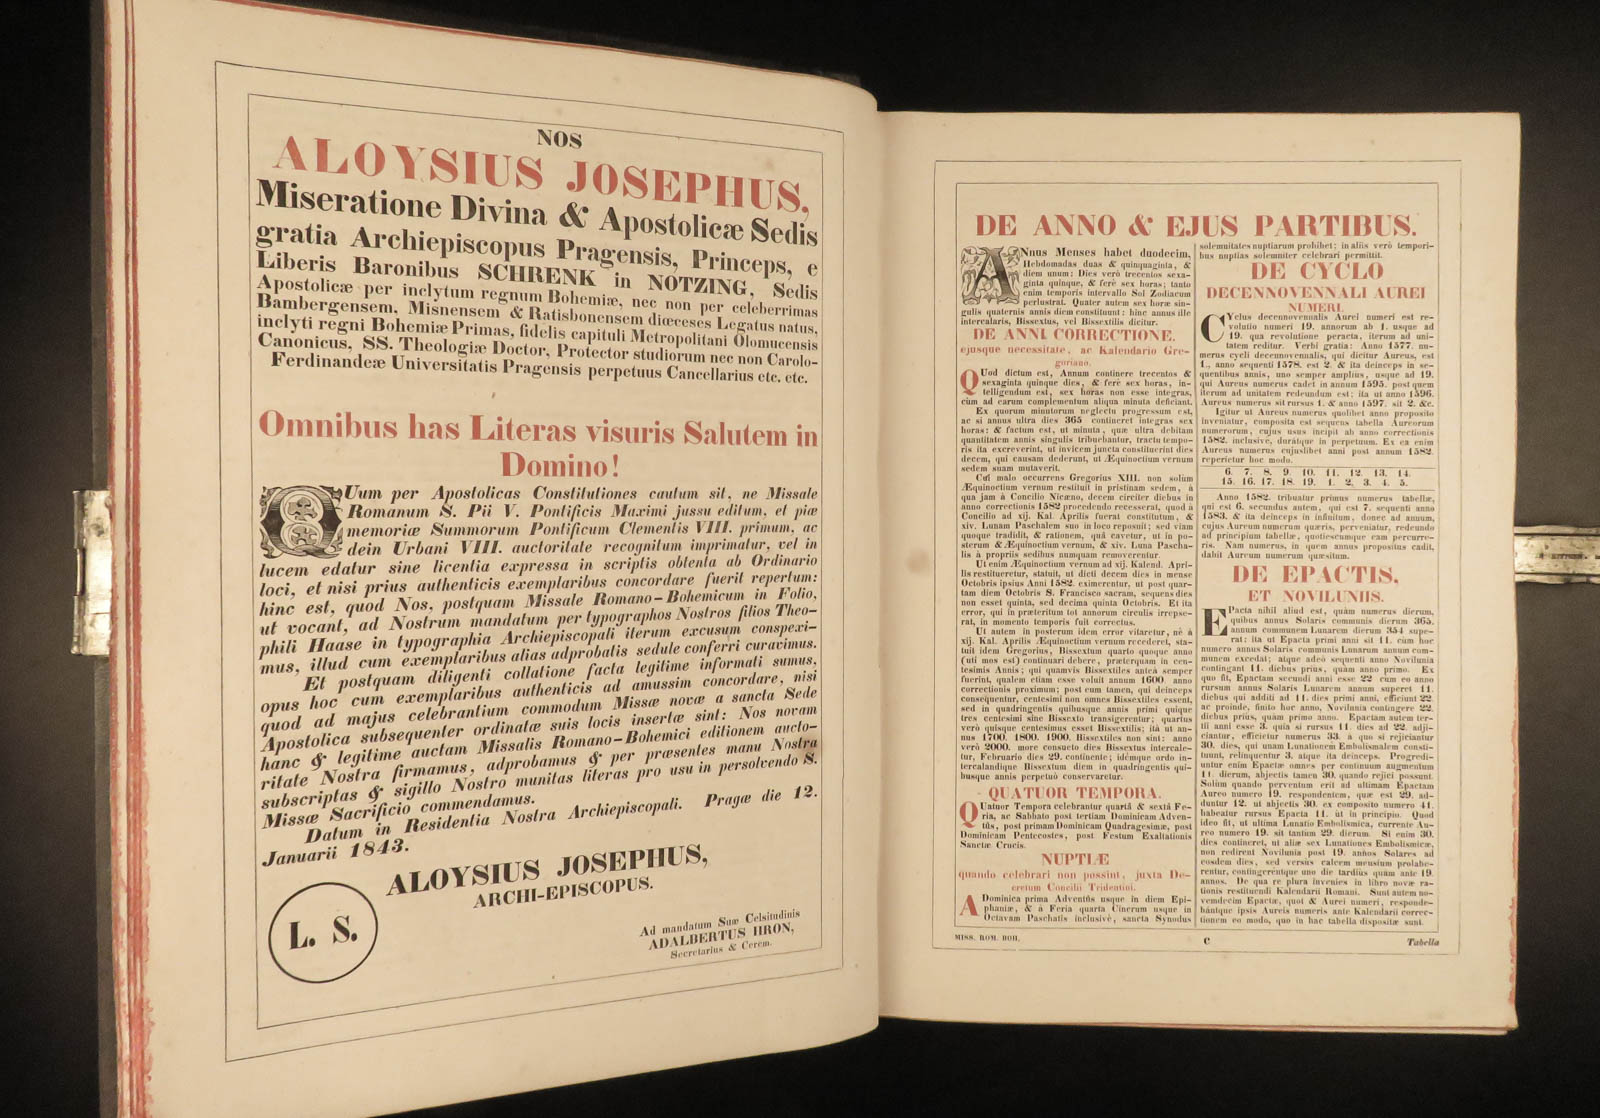 NOS
ALOYSIUS JOSEPHUS,
Miseratione Divina & Apostolicæ Sedis
gratia Archiepiscopus Pragensis, Princeps, e
Liberis Baronibus SCHRENK in NOTZING, Sedis
Apostolicæ per inclytum regnum Bohemiæ, nec non per celeberrimas
Bambergensem, Misnensem & Ratisbonensem diœceses Legatus natus,
inclyti regni Bohemiæ Primas, fidelis capituli Metropolitani Olomucensis
Canonicus, SS. Theologiæ Doctor, Protector studiorum nec non Carolo-
Ferdinandeæ Universitatis Pragensis perpetuus Cancellarius etc. etc.
Omnibus has Literas visuris Salutem in
Domino!
QUum per Apostolicas Constitutiones cautum sit, ne Missale
Romanum S. Pii V. Pontificis Maximi jussu editum, et piæ
memoriæ Summorum Pontificum Clementis VIII. primum, ac
dein Urbani VIII. auctoritate recognitum imprimatur, vel in
lucem edatur sine licentia expressa in scriptis obtenta ab Ordinario
loci, et nisi prius authenticis exemplaribus concordare fuerit repertum:
hinc est, quod Nos, postquam Missale Romano-Bohemicum in Folio,
ut vocant, ad Nostrum mandatum per typographos Nostros filios Theo-
phili Haase in typographia Archiepiscopali iterum excusum conspexi-
mus, illud cum exemplaribus alias adprobatis sedule conferri curavimus.
Et postquam diligenti collatione facta legitime informati sumus,
opus hoc cum exemplaribus authenticis ad amussim concordare, nisi
quod ad majus celebrantium commodum Missæ novæ a sancta Sede
Apostolica subsequenter ordinatæ suis locis insertæ sint: Nos novam
hanc & legitime auctam Missalis Romano-Bohemici editionem aucto-
ritate Nostra firmamus, adprobamus & per præsentes manu Nostra
subscriptas & sigillo Nostro munitas literas pro usu in persolvendo S.
Missæ Sacrificio commendamus.
Datum in Residentia Nostra Archiepiscopali. Pragæ die 12.
Januarii 1843.
ALOYSIUS JOSEPHUS,
ARCHI-EPISCOPUS.
L. S.
Ad mandatum Suæ Celsitudinis
ADALBERTUS HRON,
Secretarius & Cerem.
DE ANNO & EJUS PARTIBUS.
ANnus Menses habet duodecim,
Hebdomadas duas & quinquaginta, &
diem unum: Dies verò trecentos sexa-
ginta quinque, & ferè sex horas; tanto
enim temporis intervallo Sol Zodiacum
perlustrat. Quater autem sex horæ sin-
gulis quaternis annis diem constituunt: hinc annus ille
intercalaris, Bissextus, vel Bissextilis dicitur.
DE ANNI CORRECTIONE.
ejusque necessitate, ac Kalendario Gre-
goriano.
QUod dictum est, Annum continere trecentos &
sexaginta quinque dies, & ferè sex horas, in-
telligendum est, sex horas non esse integras,
cùm ad earum complementum aliqua minuta deficiant.
Ex quorum minutorum neglectu progressum est,
ac si annus ultra dies 365 contineret integras sex
horas: & factum est, ut minuta, quæ ultra debitam
quantitatem annis singulis tribuebantur, tractu tempo-
ris ita excreverint, ut invicem juncta constituerint dies
decem, qui causam dederunt, ut Æquinoctium vernum
sedem suam mutaverit.
Cui malo occurrens Gregorius XIII. non solùm
Æquinoctium vernum restituit in pristinam sedem, à
qua jam à Concilio Nicæno, decem circiter diebus in
anno correctionis 1582 procedendo recesserat, quod à
Concilio ad xij. Kal. Aprilis fuerat constitutum, &
xiv. Lunam Paschalem suo in loco reposuit; sed viam
quoque tradidit, & rationem, quâ cavetur, ut in po-
sterum & Æquinoctium vernum, & xiv. Luna Pascha-
lis à propriis sedibus numquam removerentur.
Ut enim Æquinoctium vernum ad xij. Kalend. Apri-
lis restitueretur, statuit, ut dicti decem dies in mense
Octobris ipsius Anni 1582. eximerentur, ut post quar-
tam diem Octobris S. Francisco sacram, sequens dies
non esset quinta, sed decima quinta Octobris. Et ita
error, qui in præteritum tot annorum circulis irrepse-
rat, in momento temporis fuit correctus.
Ut autem in posterum idem error vitaretur, nè à
xij. Kal. Aprilis Æquinoctium vernum recederet, sta-
tuit idem Gregorius, Bissextum quarto quoque anno
(uti mos est) continuari debere, præterquam in cen-
tesimis Annis; qui quamvis Bissextiles anteà semper
fuerint, qualem etiam esse voluit annum 1600. anno
correctionis proximum; post eum tamen, qui deinceps
consequentur, centesimi non omnes Bissextiles essent,
sed in quadringentis quibusque annis primi quique
tres centesimi sine Bissexto transigerentur; quartus
verò quisque centesimus esset Bissextilis; ità ut an-
nus 1700. 1800. 1900. Bissextiles non sint: anno
verò 2000. more consueto dies Bissextus intercale-
tur, Februario dies 29. continente; idémque ordo in-
tercalandique Bissextum diem in quadringentis qui-
busque annis perpetuò conservaretur.
QUATUOR TEMPORA.
QUatuor Tempora celebrantur quartâ & sextâ Fe-
ria, ac Sabbato post tertiam Dominicam Adven-
tûs, post primam Dominicam Quadragesimæ, post
Dominicam Pentecostes, post Festum Exaltationis
Sanctæ Crucis.
NUPTIÆ
quando celebrari non possint, juxta De-
cretum Concilii Tridentini.
A Dominica prima Adventûs usque in diem Epi-
phaniæ, & à Feria quarta Cinerum usque in
Octavam Paschatis inclusivè, sancta Synodus
solemnitates nuptiarum prohibet; in aliis verò tempori-
bus nuptias solemniter celebrari permittit.
DE CYCLO
DECENNOVENNALI AUREI
NUMERI.
CYclus decennovennalis Aurei numeri est re-
volutio numeri 19. annorum ab 1. usque ad
19. qua revolutione peracta, iterum ad uni-
tatem reditur. Verbi gratia: Anno 1577. nu-
merus cycli decennovennalis, qui dicitur Aureus, est
1., anno sequenti 1578. est 2. & ita deinceps in se-
quentibus annis, uno semper amplius, usque ad 19.
qui Aureus numerus cadet in annum 1595. post quem
iterum ad unitatem redeundum est: ita ut anno 1596.
Aureus numerus sit rursus 1. & anno 1597. sit 2. &c.
Igitur ut Aureus numerus quolibet anno proposito
inveniatur, composita est sequens tabella Aureorum
numerorum, cujus usus incipit ab anno correctionis
1582. inclusive, durátque in perpetuum. Ex ea enim
Aureus numerus cujuslibet anni post annum 1582.
reperietur hoc modo.
6. 7. 8. 9. 10. 11. 12. 13. 14.
15. 16. 17. 18. 19. 1. 2. 3. 4. 5.
Anno 1582. tribuatur primus numerus tabellæ,
qui est 6. secundus autem, qui est 7. sequenti anno
1583. & ita deinceps in infinitum, donec ad annum,
cujus Aureum numerum quæris, perveniatur, redeundo
ad principium tabellæ, quotiescumque eam percurre-
ris. Nam numerus, in quem annus propositus cadit,
dabit Aureum numerum quæsitum.
DE EPACTIS,
ET NOVILUNIIS.
EPacta nihil aliud est, quàm numerus dierum,
quibus annus Solaris communis dierum 365.
annum communem Lunarem dierum 354 supe-
rat: ita ut Epacta primi anni sit 11. cùm hoc
numero annus Solaris communis Lunarem annum com-
munem excedat; atque adeò sequenti anno Novilunia
contingant 11. diebus prius, quàm anno primo. Ex
quo fit, Epactam secundi anni esse 22 cum eo anno
rursum annus Solaris Lunarem annum superet 11.
diebus qui additi ad 11. dies primi anni, efficiunt 22.
ac proinde, finito hoc anno, Novilunia contingere 22.
diebus priùs, quàm primo anno. Epactam autem ter-
tii anni esse 3. quia si rursus 11. dies ad 22. adji-
ciantur, efficietur numerus 33. à quo si rejiciantur
30. dies, qui unam Lunationem Embolismalem consti-
tuunt, relinquuntur 3. atque ita deinceps. Progredi-
untur enim Epactæ omnes per continuum augmentum
11. dierum, abjectis tamen 30. quando rejici possunt.
Solùm quando perventum erit ad ultimam Epactam
Aureo numero 19. respondentem, quæ est 29. ad-
duntur 12. ut abjectis 30. ex composito numero 41.
habeatur rursus Epacta 11. ùt in principio. Quod
ideo fit, ut ultima Lunatio Embolismica, currente Au-
reo numero 19. sit tantùm 29. dierum. Si enim 30.
dies contineret, ut aliæ sex Lunationes Embolismicæ,
non redirent Novilunia post 19. annos Solares ad
eosdem dies, sed versùs calcem mensium prolabe-
rentur, contingerentque uno die tardiùs quàm ante 19.
annos. De qua re plura invenies in libro novæ ra-
tionis restituendi Kalendarii Romani. Sunt autem no-
vemdecim Epactæ, quot & Aurei numeri, responde-
bántque ipsis Aureis numeris ante Kalendarii correc-
tionem eo modo, quo in hac tabella dispositæ sunt.
MISS. ROM. BOH.
C
Tabella